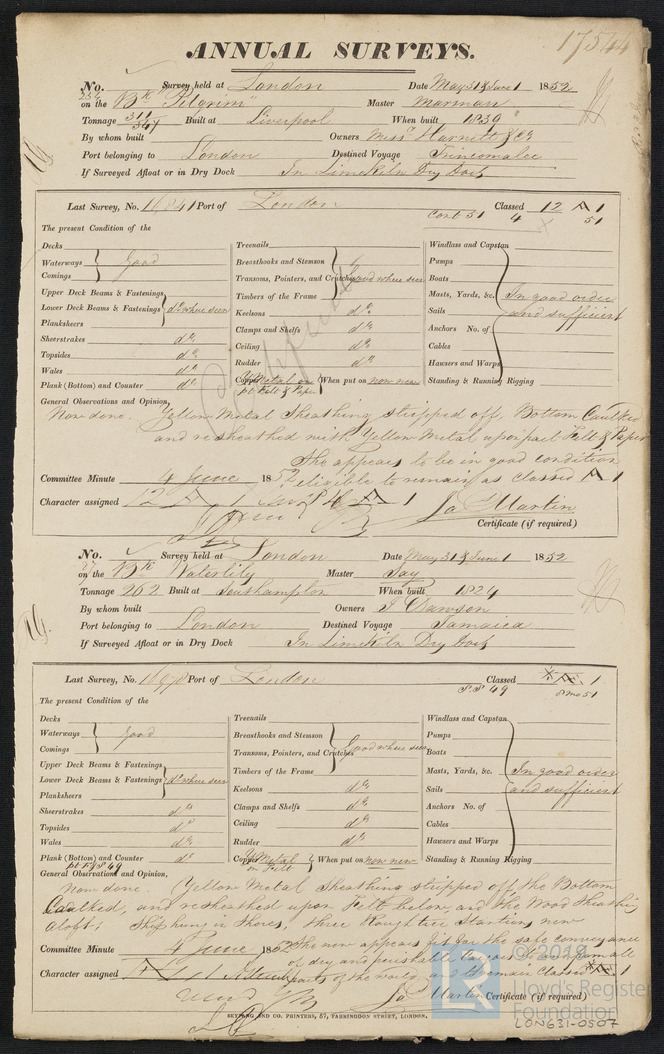 17544
ANNUAL SURVEYS.
No. 254 Survey held at London Date May 31 & June 1 1852
on the Bk "Pilgrim" Master Marman
Tonnage 311 347 Built at Liverpool When built 1839
By whom built Owners Harnett & Co
Port belonging to London Destined Voyage Trincomalee
If Surveyed Afloat or in Dry Dock In Limekiln Dry Dock
Last Survey, No. 16841 Port of London Classed 12 A 1
Cont 51 4 51
The present Condition of the
Decks
Waterways
Comings
good
Upper Deck Beams & Fastenings
Lower Deck Beams & Fastenings
Planksheers
do where seen
Sheerstrakes do
Topsides do
Wales do
Plank (Bottom) and Counter do
Treenails
Breasthooks and Stemson
Transoms, Pointers, and Crutches
Timbers of the Frame
Good where seen
Keelsons do
Clamps and Shelfs do
Ceiling do
Rudder do
Copper Y Metal on pt Felt & Paper When put on now new
Windlass and Capstan
Pumps
Boats
Masts, Yards, &c.
Sails
Anchors No. of
Cables
Hawsers and Warps
Standing & Running Rigging
In good order
and sufficient
General Observations and Opinion,
Now done. Yellow Metal Sheathing stripped off, Bottom Caulked
and resheathed with Yellow Metal upon part Felt & Paper
She appears to be in good condition
Committee Minute 4 June 1852 eligible to remain as classed A 1
Character assigned 12 A 1
Jas Martin
Certificate (if required)
No. 27 Survey held at London Date May 31 & June 1 1852
on the Bk Waterlily Master Jay
Tonnage 202 Built at Southampton When built 1824
By whom built Owners J Dawson
Port belonging to London Destined Voyage Jamaica
If Surveyed Afloat or in Dry Dock In Limekiln Dry Dock
Last Survey, No. Port of London Classed A 1
49 51
The present Condition of the
Decks
Waterways
Comings
good
Upper Deck Beams & Fastenings
Lower Deck Beams & Fastenings
Planksheers
do where seen
Sheerstrakes do
Topsides do
Wales do
Plank (Bottom) and Counter do
Treenails
Breasthooks and Stemson
Transoms, Pointers, and Crutches
Timbers of the Frame
Good where seen
Keelsons do
Clamps and Shelfs do
Ceiling do
Rudder do
Copper Y Metal on Felt When put on now new
Windlass and Capstan
Pumps
Boats
Masts, Yards, &c.
Sails
Anchors No. of
Cables
Hawsers and Warps
Standing & Running Rigging
In good order
and sufficient
General Observations and Opinion,
Now done. Yellow Metal Sheathing stipped off, the Bottom
Caulked, and resheathed upon Felt below, and the Wood Sheathing
aloft: Ship hung in Shores, three Roughtree Stantions new
Committee Minute 4 June 1852 She now appears fit for the safe conveyance
of dry and perishable Cargoes to and from all
Character assigned parts of the world, and to remain Classed A 1
Jas Martin Certificate (if required)
SEYFANG AND CO. PRINTERS, 57, FARRINGDON STREET, LONDON.
© 2019
Lloyd's Register
Foundation
LON631-0507